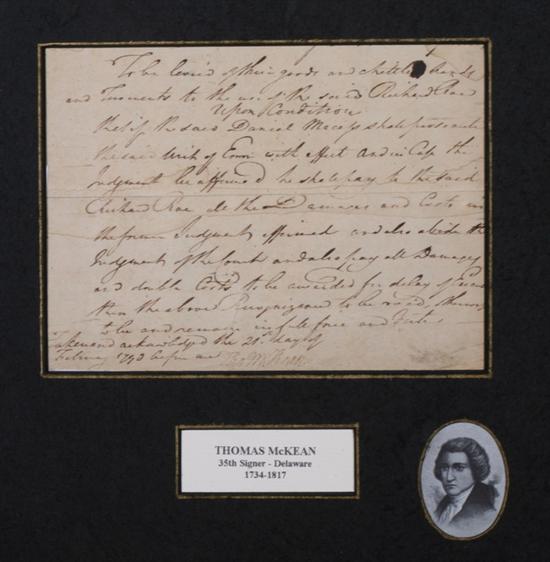 To be levied of their goods and chattels lands
and Tenements to the use of the said Richard Rae
Upon Condition
that if the said Daniel shall prosecute
the said Writ of Error with effect and in Case the
Judgment be affirmed he shall pay to the said
Richard Rae all the Damages and Costs
the former Judgment affirmed and also abide the
Judgment of the Court and also pay all Damages
and double Costs to be awarded for delay of
then the above Recognizance to be void, otherwise
to be and remain in full force and
Taken and acknowledged the 20th day of
February before me Tho M:Kean
THOMAS McKEAN
35th Signer - Delaware
1734-1817